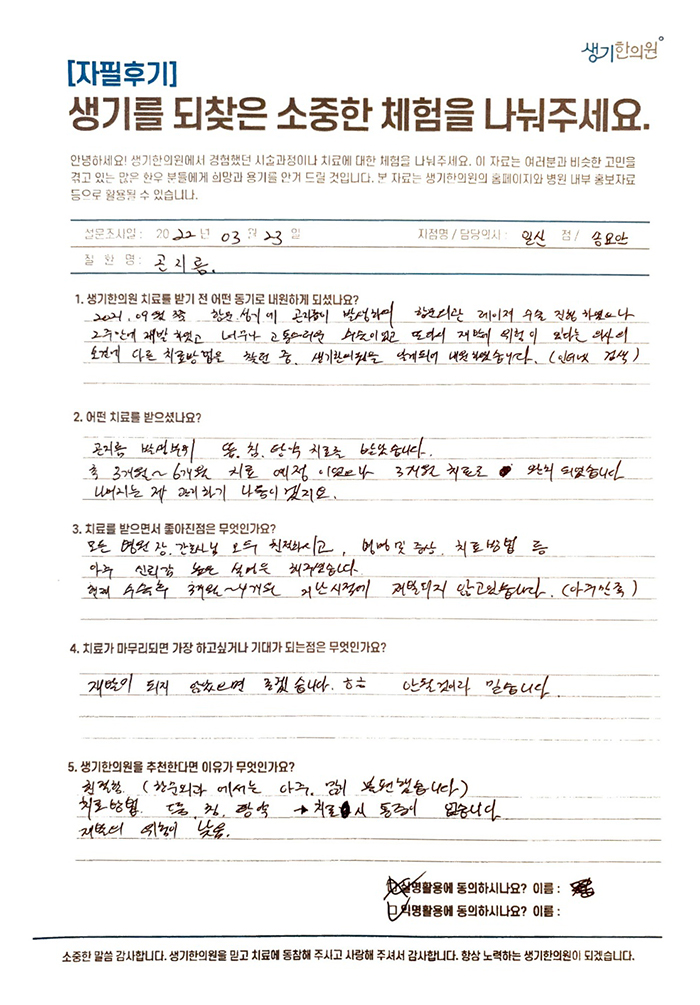 생기한의원
[자필후기]
생기를 되찾은 소중한 체험을 나눠주세요.
안녕하세요! 생기한의원에서 경험했던 시술과정이나 치료에 대한 체험을 나눠주세요. 이 자료는 여러분과 비슷한 고민을
겪고 있는 많은 환우 분들에게 희망과 용기를 안겨 드릴 것입니다. 본 자료는 생기한의원의 홈페이지와 병원 내부 홍보자료
등으로 활용될 수 있습니다.
설문조사일 : 2022년 03월 23일 지점명 / 담당의사 : 일산 점 / 송요안
질 환 명 : 곤지름.
1. 생기한의원 치료를 받기 전 어떤 동기로 내원하게 되셨나요?
2021. 09월 쯤 항문, 성기에 곤지름이 발생하여 항문외과 레이저 수술 진행 하였으나
2주만에 재발하였고 너무나 고통스러운 수술이었고 또다시 재발에 위험이 있다는 의사의
소견에 다른 치료방법을 찾던 중, 생기한의원을 알게되어 내원하였습니다. (인터넷 검색)
2. 어떤 치료를 받으셨나요?
곤지름 발생부위 뜸, 침, 한약 치료를 받았습니다.
총 3개월~6개월 치료 예정 이었으나 3개월 치료로 완치 되었습니다
나머지는 제 관리하기 나름이겠지요.
3. 치료를 받으면서 좋아진점은 무엇인가요?
모든 병원장, 간호사님 모두 친절하시고, 병명 및 증상, 치료방법 등
아주 신뢰감 높은 설명을 해주셨습니다.
현재 수술후 3개월~4개월 지난시점에 재발되지 않고있습니다. (아주만족)
4. 치료가 마무리되면 가장 하고싶거나 기대가 되는점은 무엇인가요?
재발이 되지 않았으면 좋겠습니다. ㅎㅎ 안될것이라 믿습니다
5. 생기한의원을 추천한다면 이유가 무엇인가요?
친절함 (항문외과 에서는 아주, 많이 불편했습니다)
치료방법 뜸, 침, 한약 → 치료시 통증이 없습니다
재발의 위험이 낮음.
실명활용에 동의하시나요? 이름 :
익명활용에 동의하시나요? 이름 :
소중한 말씀 감사합니다. 생기한의원을 믿고 치료에 동참해 주시고 사랑해 주셔서 감사합니다. 항상 노력하는 생기한의원이 되겠습니다.